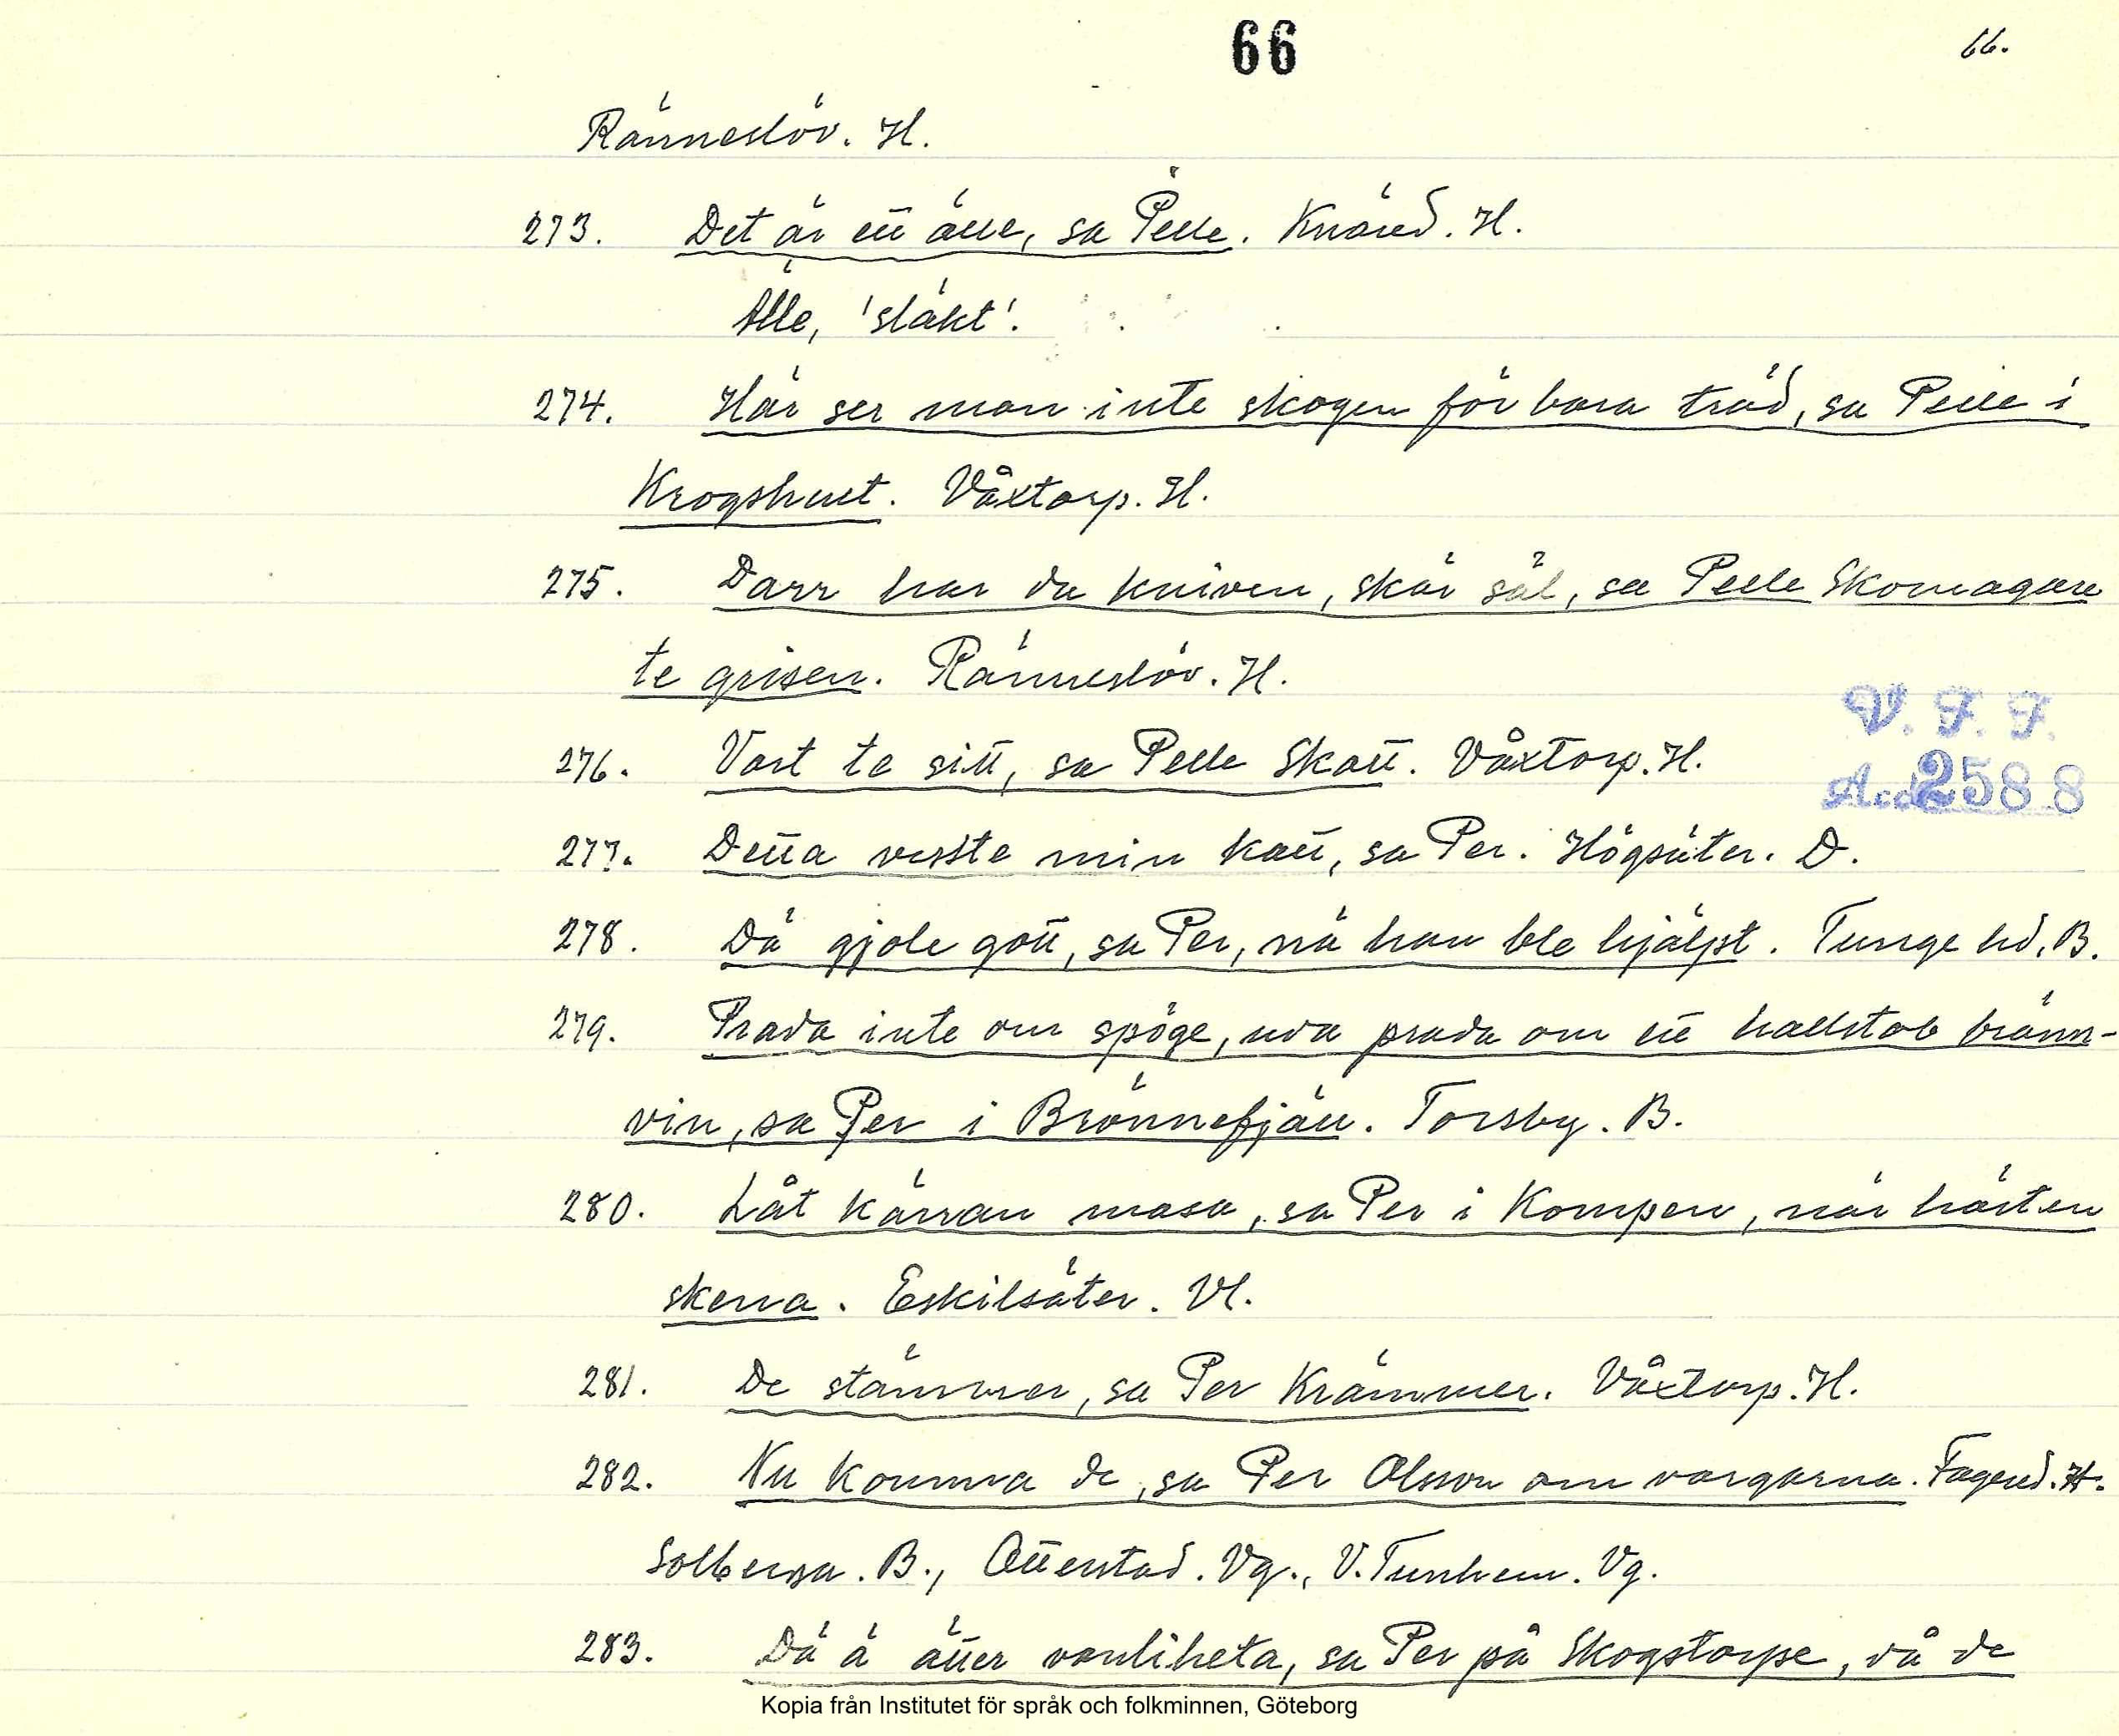 66
66.
Ränneslöv. H.
273. Det är ett älle, sa Pelle. Knäred. H.
Älle, 'släkt'.
274. Här ser man inte skogen för bara träd, sa Pelle i
Krogshult. Våxtorp. H.
275. Darr har du kniven, skär säl, sa Pelle Skomagare
te grisen. Ränneslöv. H.
276. Vart te sitt, sa Pelle Skatt. Våxtorp. H.
277. Detta visste min katt, sa Per. Högsäter. D.
278. Dä gjole gott, sa Per, nä han ble hjälpt. Tunge hd. B.
279. Prada inte om spöge, uda prada om ett hallstob bränn-
vin, sa Per i Brönnefjäll. Torsby. B.
280. Låt kärran masa, sa Per i Kompen, när hästen
skena. Eskilsäter. Vl.
281. De stämmer, sa Per Krämmer. Våxtorp. H.
282. Nu komma de, sa Per Olsson om vargarna. Fagered. H.
Solberga. B., Otterstad. Vg., V. Tunhem. Vg.
283. Dä ä ätter vanliheta, sa Per på Skogstorpe, då de
V. F. F.
Acc. 2588
Kopia från Institutet för språk och folkminnen, Göteborg